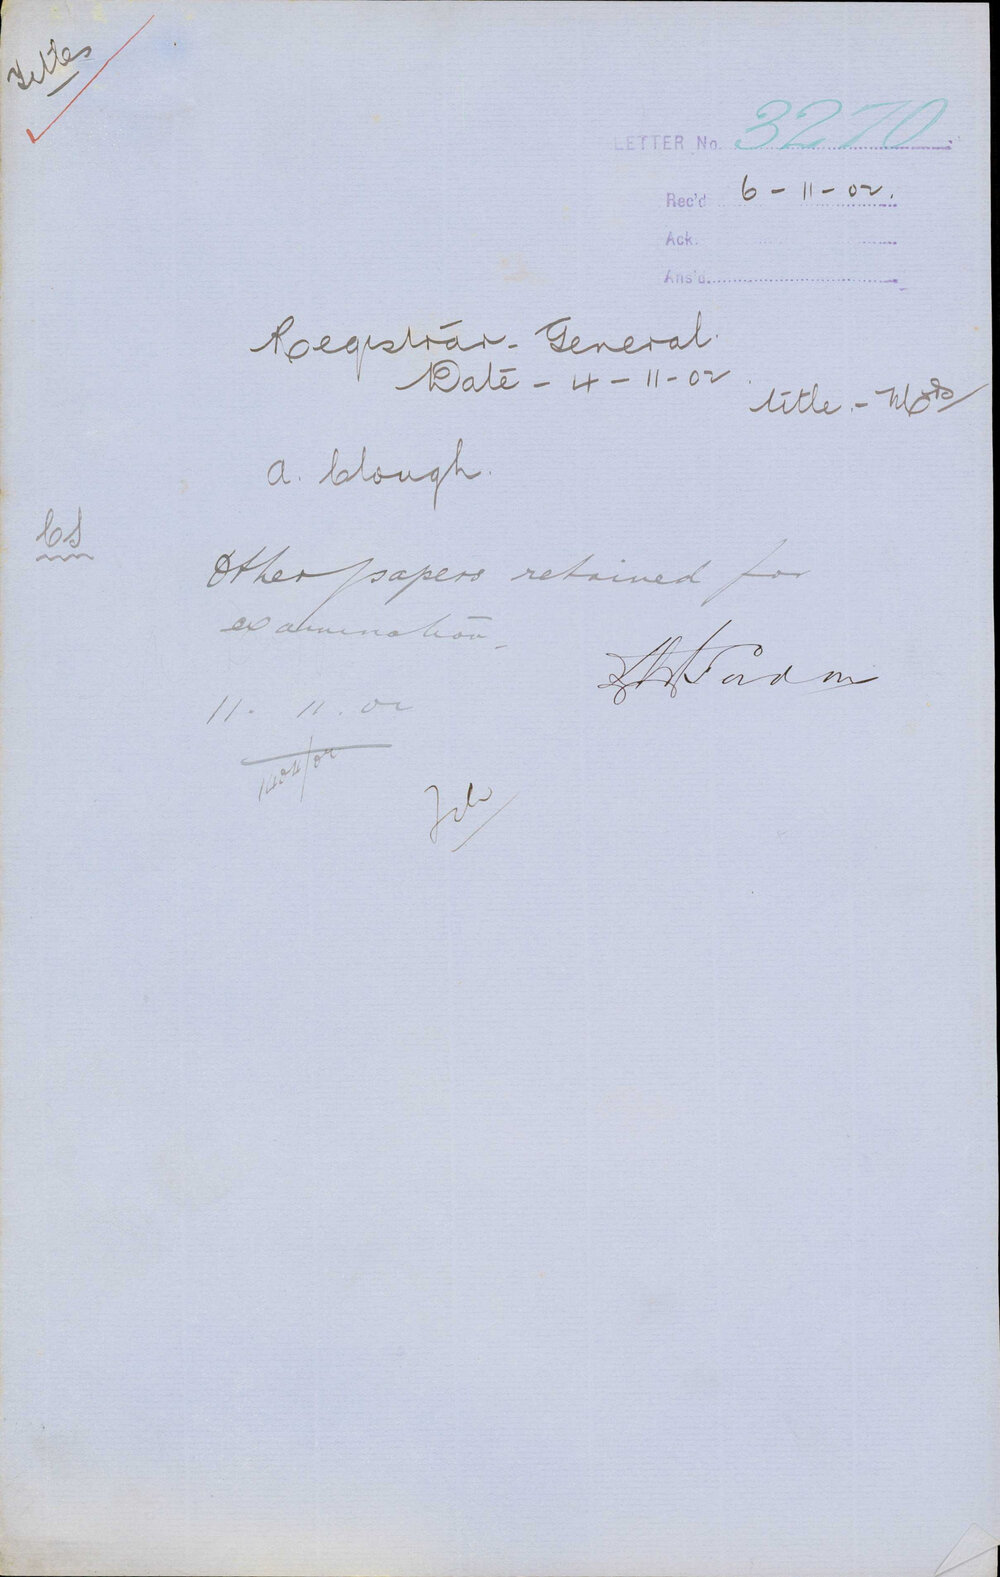 Titles
LETTER No. 3270
Rec'd 6-11-02.
Ack.
Ans'd.
Registrar-General.
Date - 4-11-02.
title.-
A. Clough.
CS
Other papers retained for
examination.
11. 11. 02